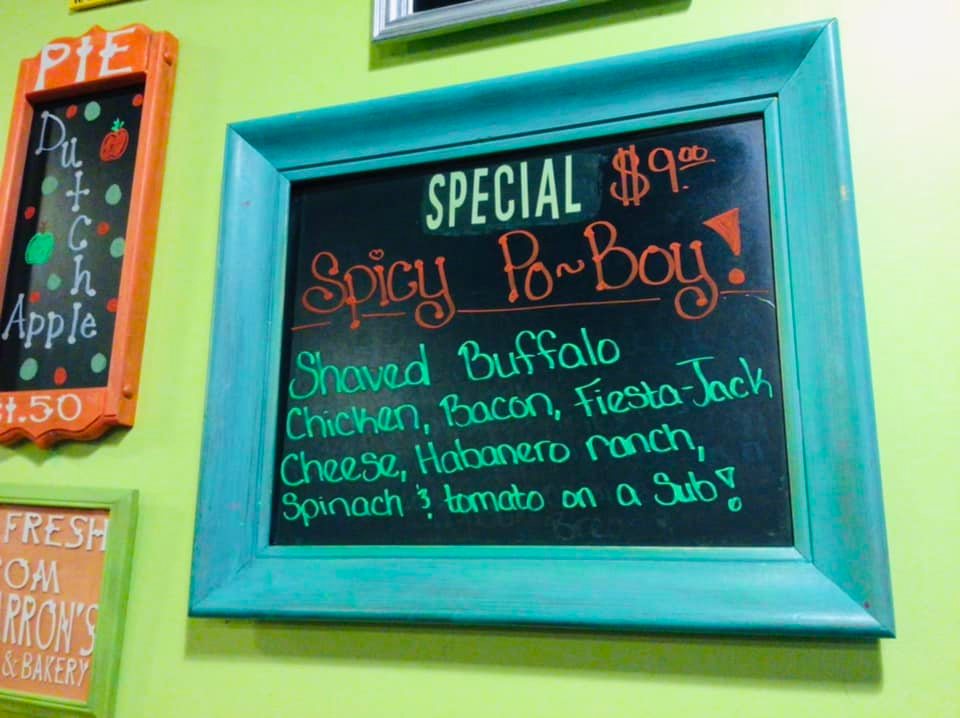 PIE
Dutch
Apple
.50
FRESH
OM
RRON'S
& BAKERY
SPECIAL $9.00
Spicy Po~Boy!
Shaved Buffalo
Chicken, Bacon, Fiesta-Jack
Cheese, Habanero ranch,
Spinach & tomato on a Sub!